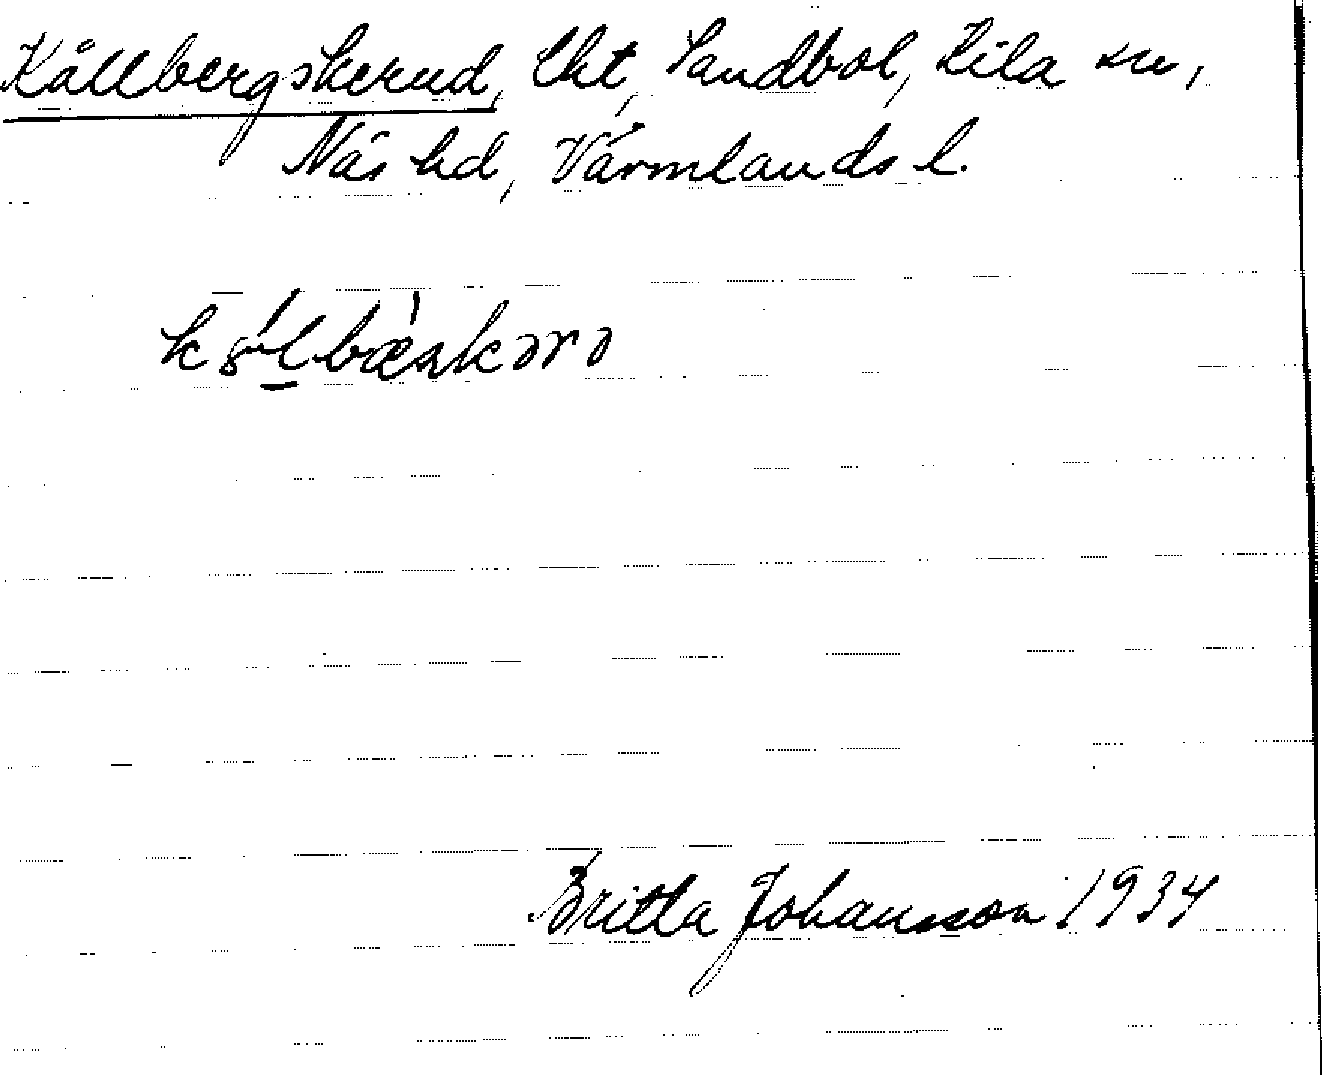 Kållbergskerud, lht, Sandbol, Kila sn,
Näs hd, Värmlands l.
Britta Johansson 1934